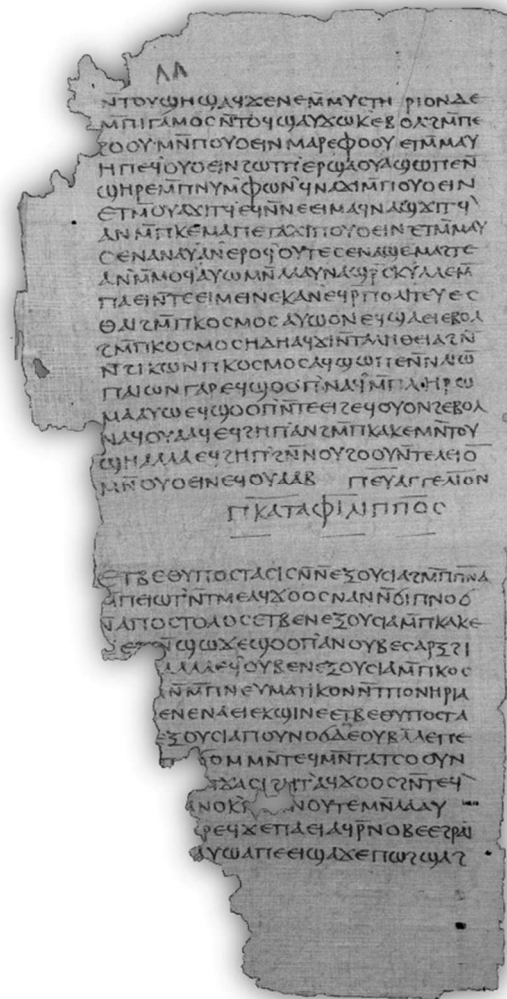 ⲛⲧⲟⲩϣⲏϣⲁⲩϫⲉⲛⲉⲙ̄ⲙⲩⲥⲧⲏⲣⲓⲟⲛⲇⲉ
ⲙ̄ⲡⲓⲅⲁⲙⲟⲥⲛ̄ⲧⲟϥϣⲁⲩϫⲱⲕⲉⲃⲟⲗϩⲙ̄ⲡⲉ
ϩⲟⲟⲩⲙⲛ̄ⲡⲟⲩⲟⲉⲓⲛⲙⲁⲣⲉⲫⲟⲟⲩⲉⲧⲙ̄ⲙⲁⲩ
ⲏⲡⲉϥⲟⲩⲟⲉⲓⲛϩⲱⲧⲡⲉⲣϣⲁⲟⲩⲁϣⲱⲡⲉⲛ̄
ϣⲏⲣⲉⲙ̄ⲡⲛⲩⲙⲫⲱⲛϥⲛⲁϫⲓⲙ̄ⲡⲟⲩⲟⲉⲓⲛ
ⲉⲧⲙ̄ⲟⲩⲁϫⲓⲧϥⲉϥⲛ̄ⲛⲉⲉⲓⲙⲁϥⲛⲁϣϫⲓⲧϥ
ⲁⲛⲙ̄ⲡⲕⲉⲙⲁⲡⲉⲧⲁϫⲓⲡⲟⲩⲟⲉⲓⲛⲉⲧⲙ̄ⲙⲁⲩ
ⲥⲉⲛⲁⲛⲁⲩⲁⲛⲉⲣⲟϥⲟⲩⲧⲉⲥⲉⲛⲁϣⲉⲙⲁϩⲧⲉ
ⲁⲛⲙ̄ⲙⲟϥⲁⲩⲱⲙⲛ̄ⲗⲁⲁⲩⲛⲁϣⲣ̄ⲥⲕⲩⲗⲗⲉⲙ̄
ⲡⲁⲉⲓⲛ̄ⲧⲉⲉⲓⲙⲉⲓⲛⲉⲕⲁⲛⲉϥⲣ̄ⲡⲟⲗⲓⲧⲉⲩⲉⲥ
ⲑⲁⲓϩⲙ̄ⲡⲕⲟⲥⲙⲟⲥⲁⲩⲱⲟⲛⲉϥϣⲁⲉⲓⲉⲃⲟⲗ
ϩⲙ̄ⲡⲕⲟⲥⲙⲟⲥⲏⲇⲏⲁϥϫⲓⲛ̄ⲧⲁⲗⲏⲑⲉⲓⲁϩⲛ̄
ⲛ̄ϩⲓⲕⲱⲛⲡⲕⲟⲥⲙⲟⲥⲁϥϣⲱⲡⲉⲛ̄ⲛⲁⲓⲱⲛ
ⲡⲁⲓⲱⲛⲅⲁⲣⲉϥϣⲟⲟⲡⲛⲁϥⲙ̄ⲡⲗⲏⲣⲱ
ⲙⲁⲁⲩⲱⲉϥϣⲟⲟⲡⲛ̄ⲧⲉⲉⲓϩⲉϥⲟⲩⲟⲛϩⲉⲃⲟⲗ
ⲛⲁϥⲟⲩⲁⲁϥⲉϥϩⲏⲡⲁⲛϩⲙ̄ⲡⲕⲁⲕⲉⲙⲛ̄ⲧⲟⲩ
ϣⲏⲁⲗⲗⲁⲉϥϩⲏⲡϩⲛ̄ⲛⲟⲩϩⲟⲟⲩⲛ̄ⲧⲉⲗⲉⲓⲟ̄
ⲙⲛ̄ⲟⲩⲟⲉⲓⲛⲉϥⲟⲩⲁⲁⲃ ⲡⲉⲩⲁⲅⲅⲉⲗⲓⲟⲛ
ⲡⲕⲁⲧⲁⲫⲓⲗⲓⲡⲡⲟⲥ
ⲉⲧⲃⲉⲑⲩⲡⲟⲥⲧⲁⲥⲓⲥⲛ̄ⲛⲉⲝⲟⲩⲥⲓⲁϩⲙ̄ⲡⲡ̄ⲛ̄ⲁ̄
ⲙ̄ⲡⲉⲓⲱⲧⲛ̄ⲧⲙⲉⲁϥϫⲟⲟⲥⲛⲁⲛⲛ̄ϭⲓⲡⲛⲟϭ
ⲛ̄ⲁⲡⲟⲥⲧⲟⲗⲟⲥⲉⲧⲃⲉⲛⲉⲝⲟⲩⲥⲓⲁⲙ̄ⲡⲕⲁⲕⲉ
ϫⲉⲧⲛ̄ϣⲱϫⲉϣⲟⲟⲡⲁⲛⲟⲩⲃⲉⲥⲁⲣⲝϩⲓ
ⲁⲗⲗⲁⲉϥⲟⲩⲃⲉⲛⲉⲝⲟⲩⲥⲓⲁⲙ̄ⲡⲕⲟⲥ
ⲛ̄ⲙ̄ⲡⲛⲉⲩⲙⲁⲧⲓⲕⲟⲛⲛ̄ⲧⲡⲟⲛⲏⲣⲓⲁ
ⲉⲛⲉⲛⲁⲉⲓⲉⲕϣⲓⲛⲉⲉⲧⲃⲉⲑⲩⲡⲟⲥⲧⲁ
ⲉⲝⲟⲩⲥⲓⲁⲡⲟⲩⲛⲟϭⲇⲉⲟⲩⲃⲗ̄ⲗⲉⲡⲉ
ϭⲟⲙⲙⲛ̄ⲧⲉϥⲙⲛ̄ⲧⲁⲧⲥⲟⲟⲩⲛ
ϫⲁⲥⲓϩⲏⲧⲁϥϫⲟⲟⲥϩⲛ̄ⲧⲉϥ
ⲁⲛⲟⲕⲡⲉ ⲛⲟⲩⲧⲉⲙⲛ̄ⲗⲁⲁⲩ
ⲣⲉϥϫⲉⲡⲁⲉⲓⲁϥⲣ̄ⲛⲟⲃⲉⲉϩⲣⲁⲓ
ⲁⲩⲱⲁⲡⲉⲉⲓϣⲁϫⲉⲡⲱϩϣⲁϩ